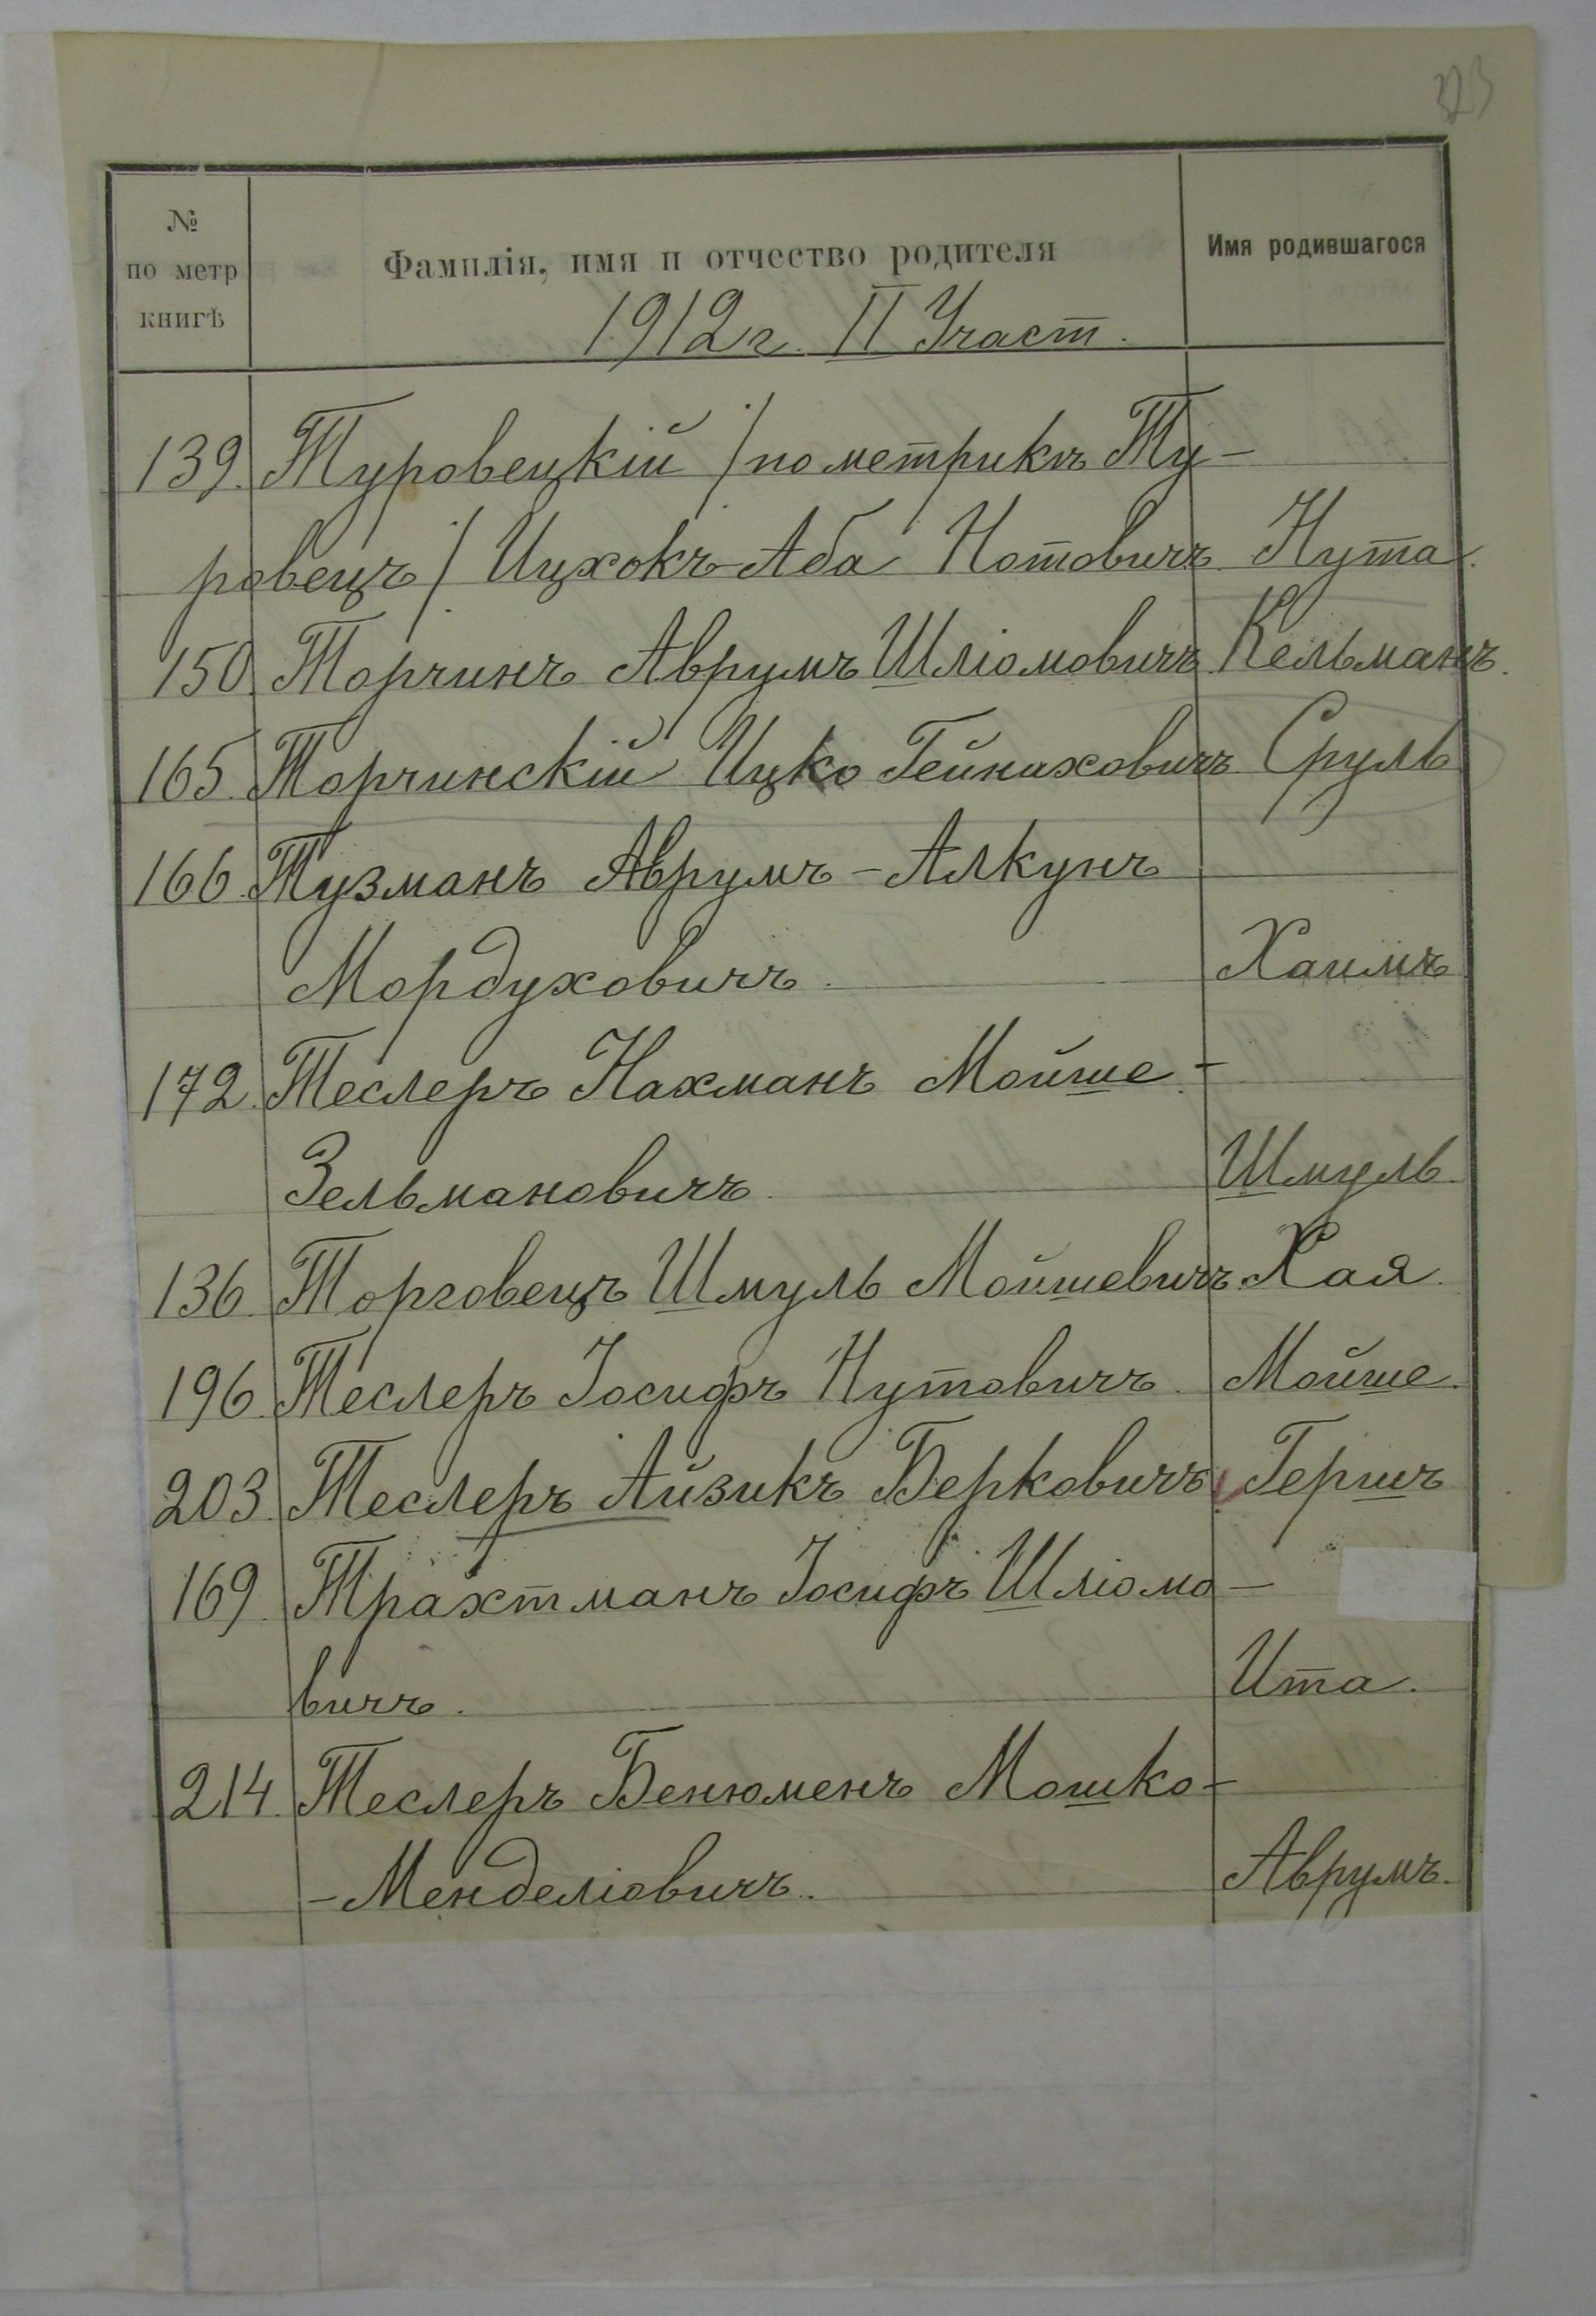 323
№
по метр
книгѣ
Фамилія, имя и отчество родителя
Имя родившагося
1912 г. II Участ.
139. Туровецкій / по метрикѣ Ту-
ровецъ / Ицхокъ-Аба Нотовичъ Нута.
150. Торчинъ Аврумъ Шліомовичъ Кельманъ.
165. Торчинскій Ицко Гейнаховичъ Сруль
166. Тузманъ Аврумъ-Алкунъ
Мордуховичъ. Хаимъ
172. Теслеръ Нахманъ Мойше-
Зельмановичъ. Шмуль.
136. Торговецъ Шмуль Мойшевичъ Хая.
196. Теслеръ Іосифъ Нутовичъ. Мойше.
203. Теслеръ Айзикъ Берковичъ Гершъ
169. Трахтманъ Іосифъ Шліомо-
вичъ. Ита.
214. Теслеръ Бенюменъ Мошко-
-Менделіовичъ. Аврумъ.